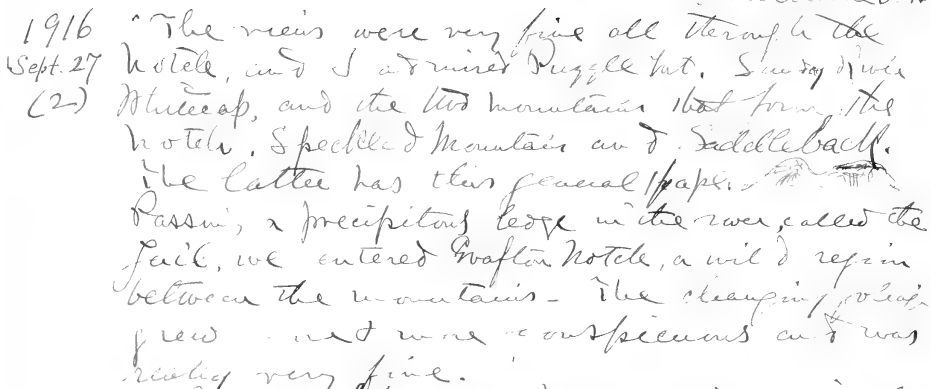 1916 "The views were very fine all through the
Sept. 27 Notch, and I admired Puzzle Mt. Sunday River
(2) Whitecap, and the two mountains that form the
Notch, Speckled Mountain and Saddleback.
The latter has this general shape.
Passing a precipitous ledge in the river, called the
Jail, we entered Grafton Notch, a wild region
between the mountains - The changing
grew more conspicuous and was
really very fine.